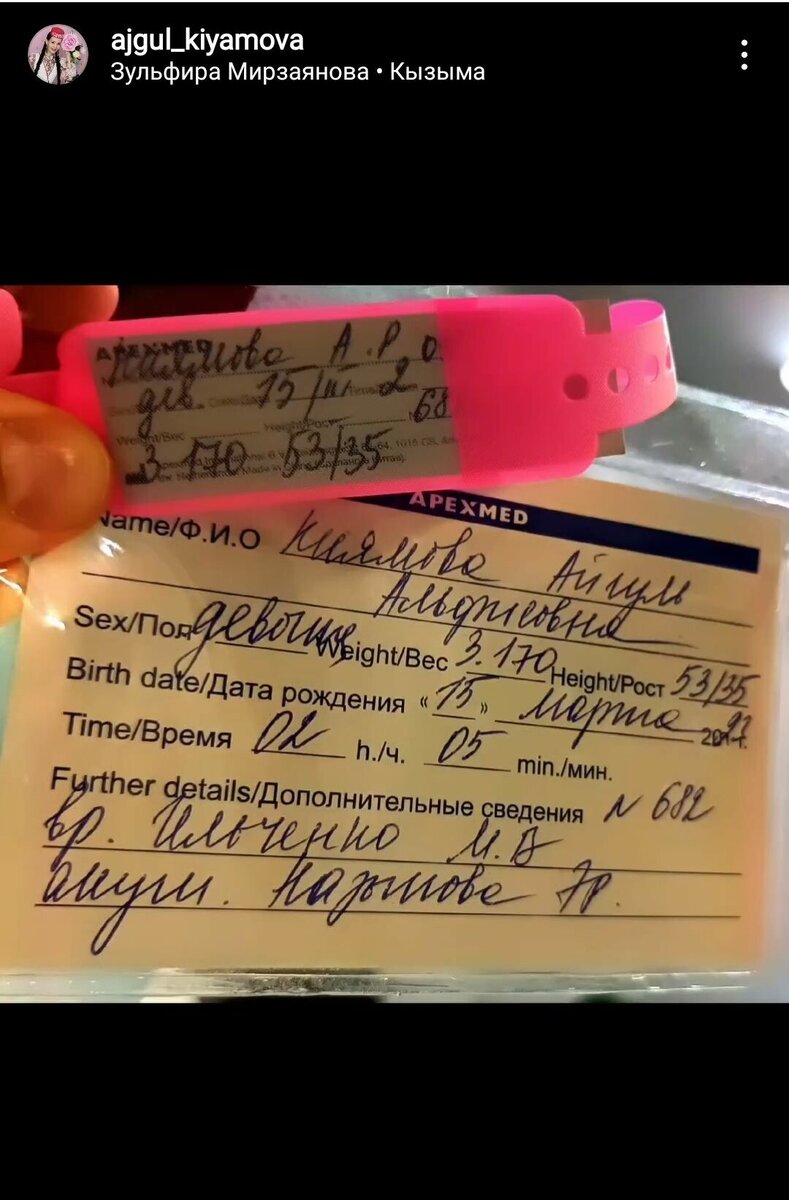 ajgul_kiyamova
Зульфира Мирзаянова • Кызыма
APEXMED
Киямова А.Р О
дев. 15/III 2
Weight/Вес Height/Рост 68
3 170 53/35
APEXMED
Name/Ф.И.О Киямова Айгуль
Альфисовна
Sex/Пол девочка Weight/Вес 3.170 Height/Рост 53/35
Birth date/Дата рождения «15» марта
Time/Время 02 h./ч. 05 min./мин.
Further details/Дополнительные сведения N 682
вр. Ильченко М.В
акуш.